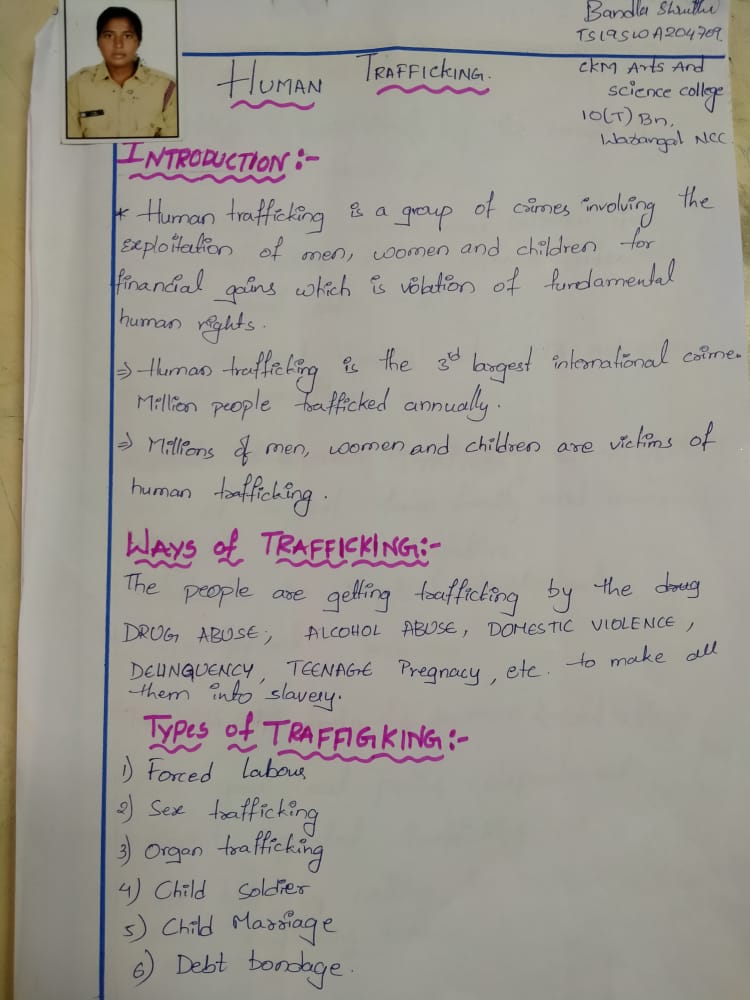 Bandla Shruthi
TS19SWA204709
HUMAN TRAFFICKING.
CKM Arts And
science college
10(T) Bn,
Warangal NCC.
INTRODUCTION:-
* Human trafficking is a group of crimes involving the
exploitation of men, women and children for
financial gains which is violation of fundamental
human rights.
⇒ Human trafficking is the 3rd largest international crime.
Million people trafficked annually.
⇒ Millions of men, women and children are victims of
human trafficking.
WAYS of TRAFFICKING:-
The people are getting trafficking by the drug
DRUG ABUSE, ALCOHOL ABUSE, DOMESTIC VIOLENCE,
DELINQUENCY, TEENAGE Pregnacy, etc. to make all
them into slavery.
TYPES of TRAFFIGKING:-
1) Forced labour
2) Sex trafficking
3) Organ trafficking
4) Child Soldier
5) Child Marriage
6) Debt bondage.